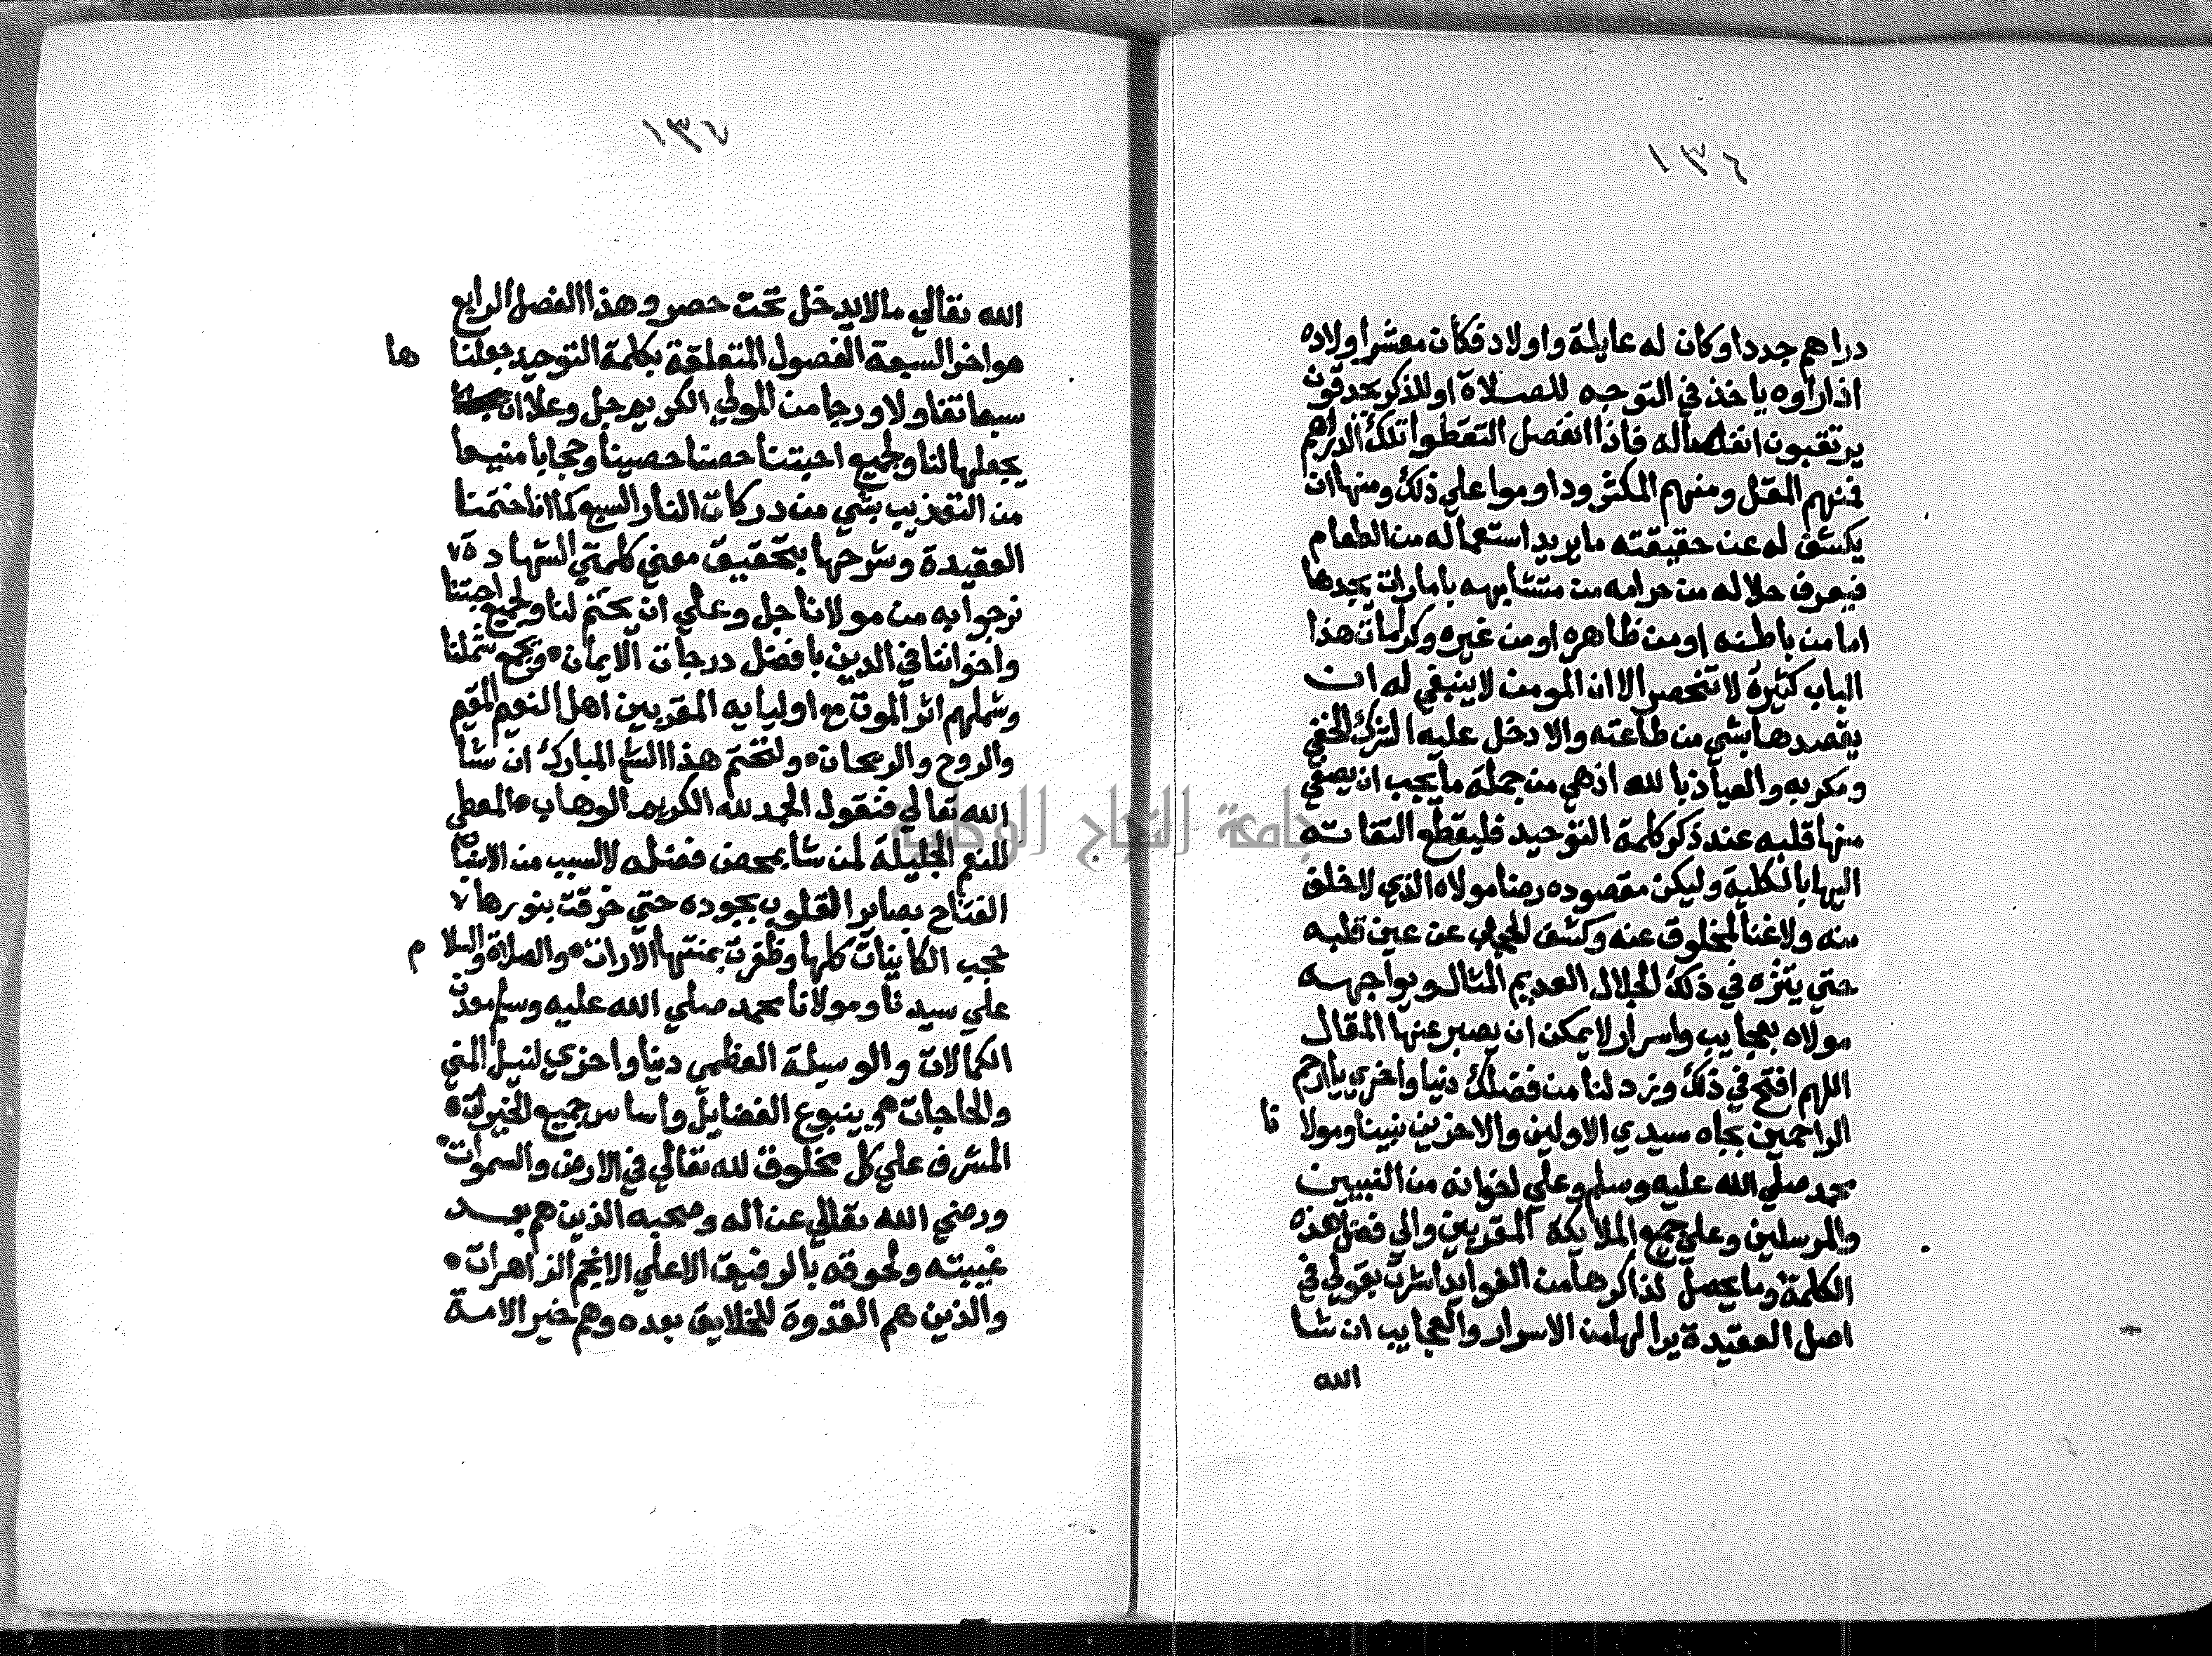 ١٣٦
دراهم جددا وكان له عايلة واولاد فكان معشرا ولاده
اذا راوه ياخذ في التوجه للصلاة او للذكر يحدقون
يرتقبون انفصاله فاذا انفصل التقطوا تلك الدراهم
فمنهم المقل ومنهم المكثر وداوموا علي ذلك ومنها ان
يكشف له عن حقيقته ما يريد استعماله من الطعام
فيعرف حلاله من حرامه من متشابهه بامارات يجدها
اما من باطنه او من ظاهره او من غيره وكرامات هذا
الباب كثيرة لا تنحصر الا ان المومن لا ينبغي له ان
يقصدها بشي من طاعته والا دخل عليه الشرك الخفي
ومكر به والعياذ بالله اذ هي من جملة ما يجب ان يصفي
منها قلبه عند ذكر كلمة التوحيد فليقطع التفاته
اليها بالكلية وليكن مقصوده رضا مولاه الذي لا خلف
منه ولا غنا لمخلوق عنه وكشف الحجاب عن عين قلبه
حتي يتنزه في ذلك الجلال العديم المثال ويواجهه
مولاه بعجايب واسرار لا يمكن ان يصبر عنها المقال
اللهم افتح في ذلك وزد لنا من فضلك دنيا واخري يا ارحم
الراحمين بجاه سيدي الاولين والاخرين نبينا ومولا نا
محمد صلي الله عليه وسلم وعلي اخوانه من النبيين
والمرسلين وعلي جميع الملايكة المقربين والي فضل هذه
الكلمة وما يحصل لذاكرها من الفوايد اشرت بقولي في
اصل العقيدة يرا لها من الاسرار والعجايب ان شا
الله
١٣٦
الله تعالي ما لا يدخل تحت حصر وهذا الفصل الرابع
هو اخر السبعة الفصول المتعلقة بكلمة التوحيد جعلنا ها
سبعا تفاولا ورجا من المولي الكريم جل وعلا ان
يجعلها لنا ولجميع احبتنا حصنا حصينا وحجابا منيعا
من التعذيب بشي من دركات النار السبع كما انا ختمنا
العقيدة وشرحها بتحقيق معني كلمتي الشهادة
نرجوا به من مولانا جل وعلي ان يختم لنا ولجميع احبتنا
واخواننا في الدين بافضل درجات الايمان ويجمع شملنا
وشملهم اثر الموت مع اوليايه المقربين اهل النعيم المقيم
والروح والريحان ولنختم هذا الشرح المبارك ان شا
الله تعالي فنقول الحمد لله الكريم الوهاب المعطي
للنعم الجليلة لمن شا بمحض فضله لا لسبب من الاسباب
الفتاح بصاير القلوب بجوده حتي خرقت بنورها
حجب الكاينات كلها وظفرت بمنتها الارات والصلاة والسلا م
علي سيدنا ومولانا محمد صلي الله عليه وسلم معدن
الكمالات والوسيلة العظمي دنيا واخري لنيل المني
والحاجات وينبوع الفضايل واساس جميع الخيرات
المشرف علي كل مخلوق لله تعالي في الارض والسموات
ورضي الله تعالي عن اله وصحبه الذين هم بعد
غيبته ولحوقه بالرفيق الاعلي الانجم الزاهرات
والذين هم القدوة للخلايق بعده وهم خير الامة
جامعة النجاح الوطنية